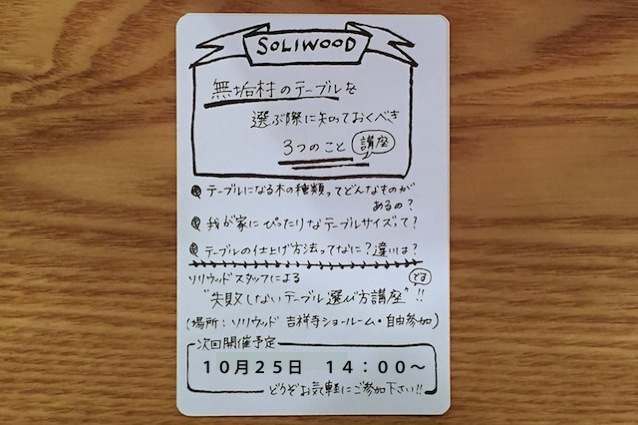 SOLIWOOD
無垢材のテーブルを
選ぶ際に知っておくべき
3つのこと 講座
テーブルになる木の種類ってどんなものが
あるの?
我が家にぴったりなテーブルサイズって?
テーブルの仕上げ方法ってなに?違いは?
ソリウッドスタッフによる
"失敗しないテーブル選び方講座" です!!
(場所:ソリウッド 吉祥寺ショールーム・自由参加)
次回開催予定
10月25日 14:00〜
どうぞお気軽にご参加下さい!!